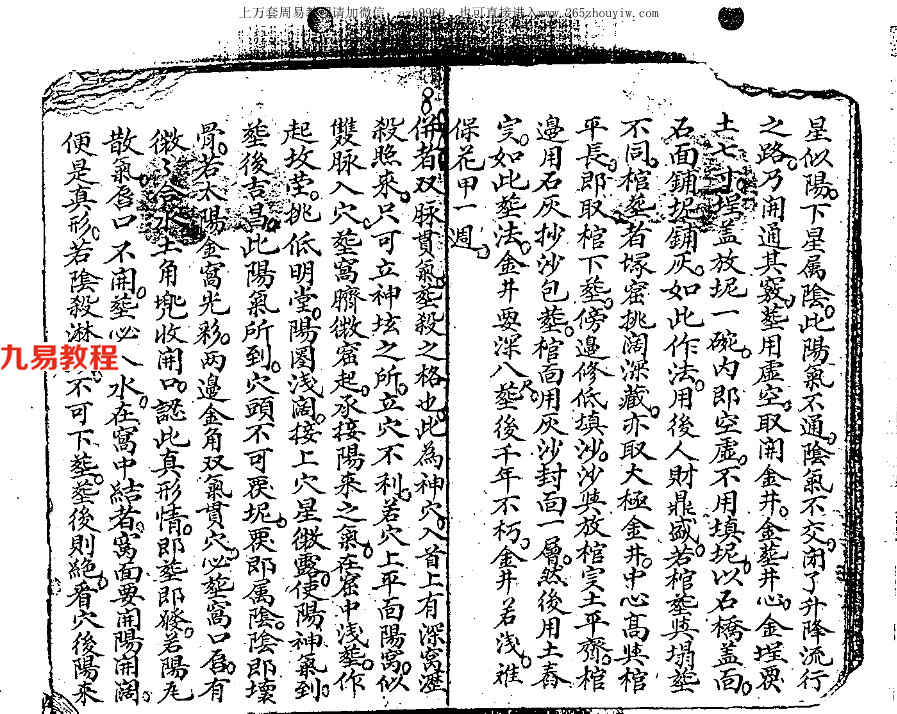 上万套周易教程请加微信 也可直接进入www.265zhouyiw.com
九易教程
星似陽下星属陰此陽氣不通陰氣不交闭了升降流行
之路乃開通其竅塟用虚空取開金井金塟井心金埕要
土七寸埕盖放坭一碗内即空虚不用填坭以石橋盖面
石面鋪坭鋪灰如此作法用後人財鼎盛若棺塟與塌塟
不同棺塟者塚窑挑闊深藏亦取大極金井中心高與棺
平長即取棺下塟傍邊修低填沙沙與放棺実土平齊棺
邊用石灰抄沙包塟棺面用灰沙封面一層然後用土舂
実如此塟法金井要深八尺塟後千年不朽金井若浅难
保花甲一週
併者双脉貫氣塟殺之格也此為神穴入首上有深窩瀝
殺照來只可立神坛之所立穴不利若穴上平面陽窩似
雙脉入穴塟窩臍微窑起承接陽来之氣在窑中浅塟作
起坟茔挑低明堂陽圏浅闊接上穴星微露使陽神氣到
塟後吉昌此陽氣所到穴頭不可要坭要即属陰陰即壊
骨若太陽金窩光彩两邊金角双氣貫穴心塟窩口唇有
微微合水土角兜收開口認此真形情即塟即發若陽尨
散氣唇口不開塟必入水在窩中結者窩面要開陽開闊
便是真形若陰殺淋 不可下塟塟後則絶看穴後陽来